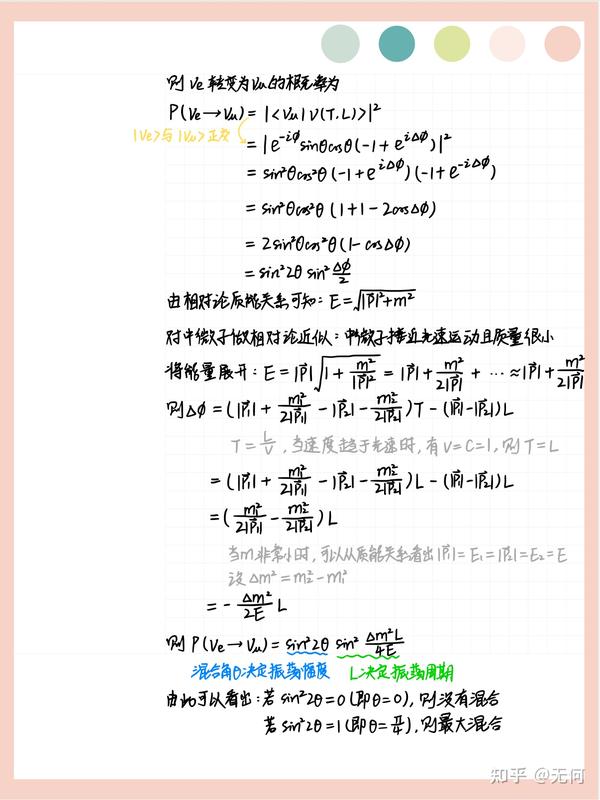 则 νe 转变为 νμ 的概率为
P(νe→νμ) = |<νμ|ν(T,L)>|²
|νe>与|νμ>正交
= |e^{-iϕ}sinθcosθ(-1+e^{iΔϕ})|²
= sin²θcos²θ(-1+e^{iΔϕ})(-1+e^{-iΔϕ})
= sin²θcos²θ(1+1-2cosΔϕ)
= 2sin²θcos²θ(1-cosΔϕ)
= sin²2θ sin²\frac{Δϕ}{2}
由相对论质能关系可知：E=\sqrt{|\vec{P}|²+m²}
对中微子做相对论近似：中微子接近光速运动且质量很小
将能量展开：E=|\vec{P}|\sqrt{1+\frac{m²}{|\vec{P}|²}} = |\vec{P}|+\frac{m²}{2|\vec{P}|}+ ⋯ ≈|\vec{P}|+\frac{m²}{2|\vec{P}|}
则Δϕ = (|\vec{P}_1|+\frac{m_1²}{2|\vec{P}_1|}-|\vec{P}_2|-\frac{m_2²}{2|\vec{P}_2|})T-(|\vec{P}_1|-|\vec{P}_2|)L
T=\frac{L}{V}，当速度趋于光速时，有V=C=1，则T=L
= (|\vec{P}_1|+\frac{m_1²}{2|\vec{P}_1|}-|\vec{P}_2|-\frac{m_2²}{2|\vec{P}_2|})L-(|\vec{P}_1|-|\vec{P}_2|)L
= (\frac{m_1²}{2|\vec{P}_1|}-\frac{m_2²}{2|\vec{P}_2|})L
当m非常小时，可以从质能关系看出|\vec{P}_1|=E_1=|\vec{P}_2|=E_2=E
设Δm²=m_2²-m_1²
= -\frac{Δm²}{2E}L
则 P(νe→νμ) = sin²2θ sin²\frac{Δm²L}{4E}
混合角θ决定振荡幅度 L决定振荡周期
由此可以看出：若sin²2θ=0(即θ=0)，则没有混合
若sin²2θ=1(即θ=\frac{π}{4})，则最大混合
知乎 @无何